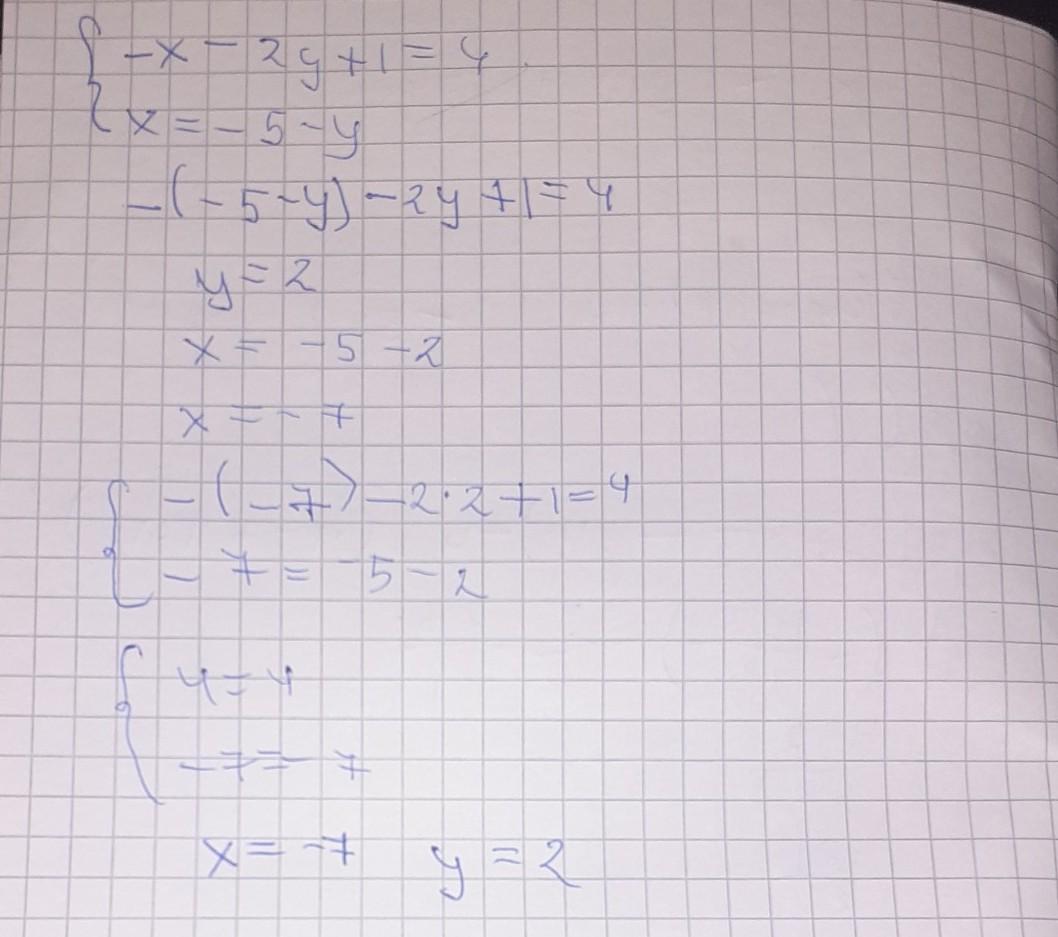 { -x - 2y + 1 = 4
x = -5 - y
-(-5-y) - 2y + 1 = 4
y = 2
x = -5 - 2
x = -7
{ -(-7) - 2·2 + 1 = 4
-7 = -5 - 2
{ 4 = 4
-7 = -7
x = -7 y = 2